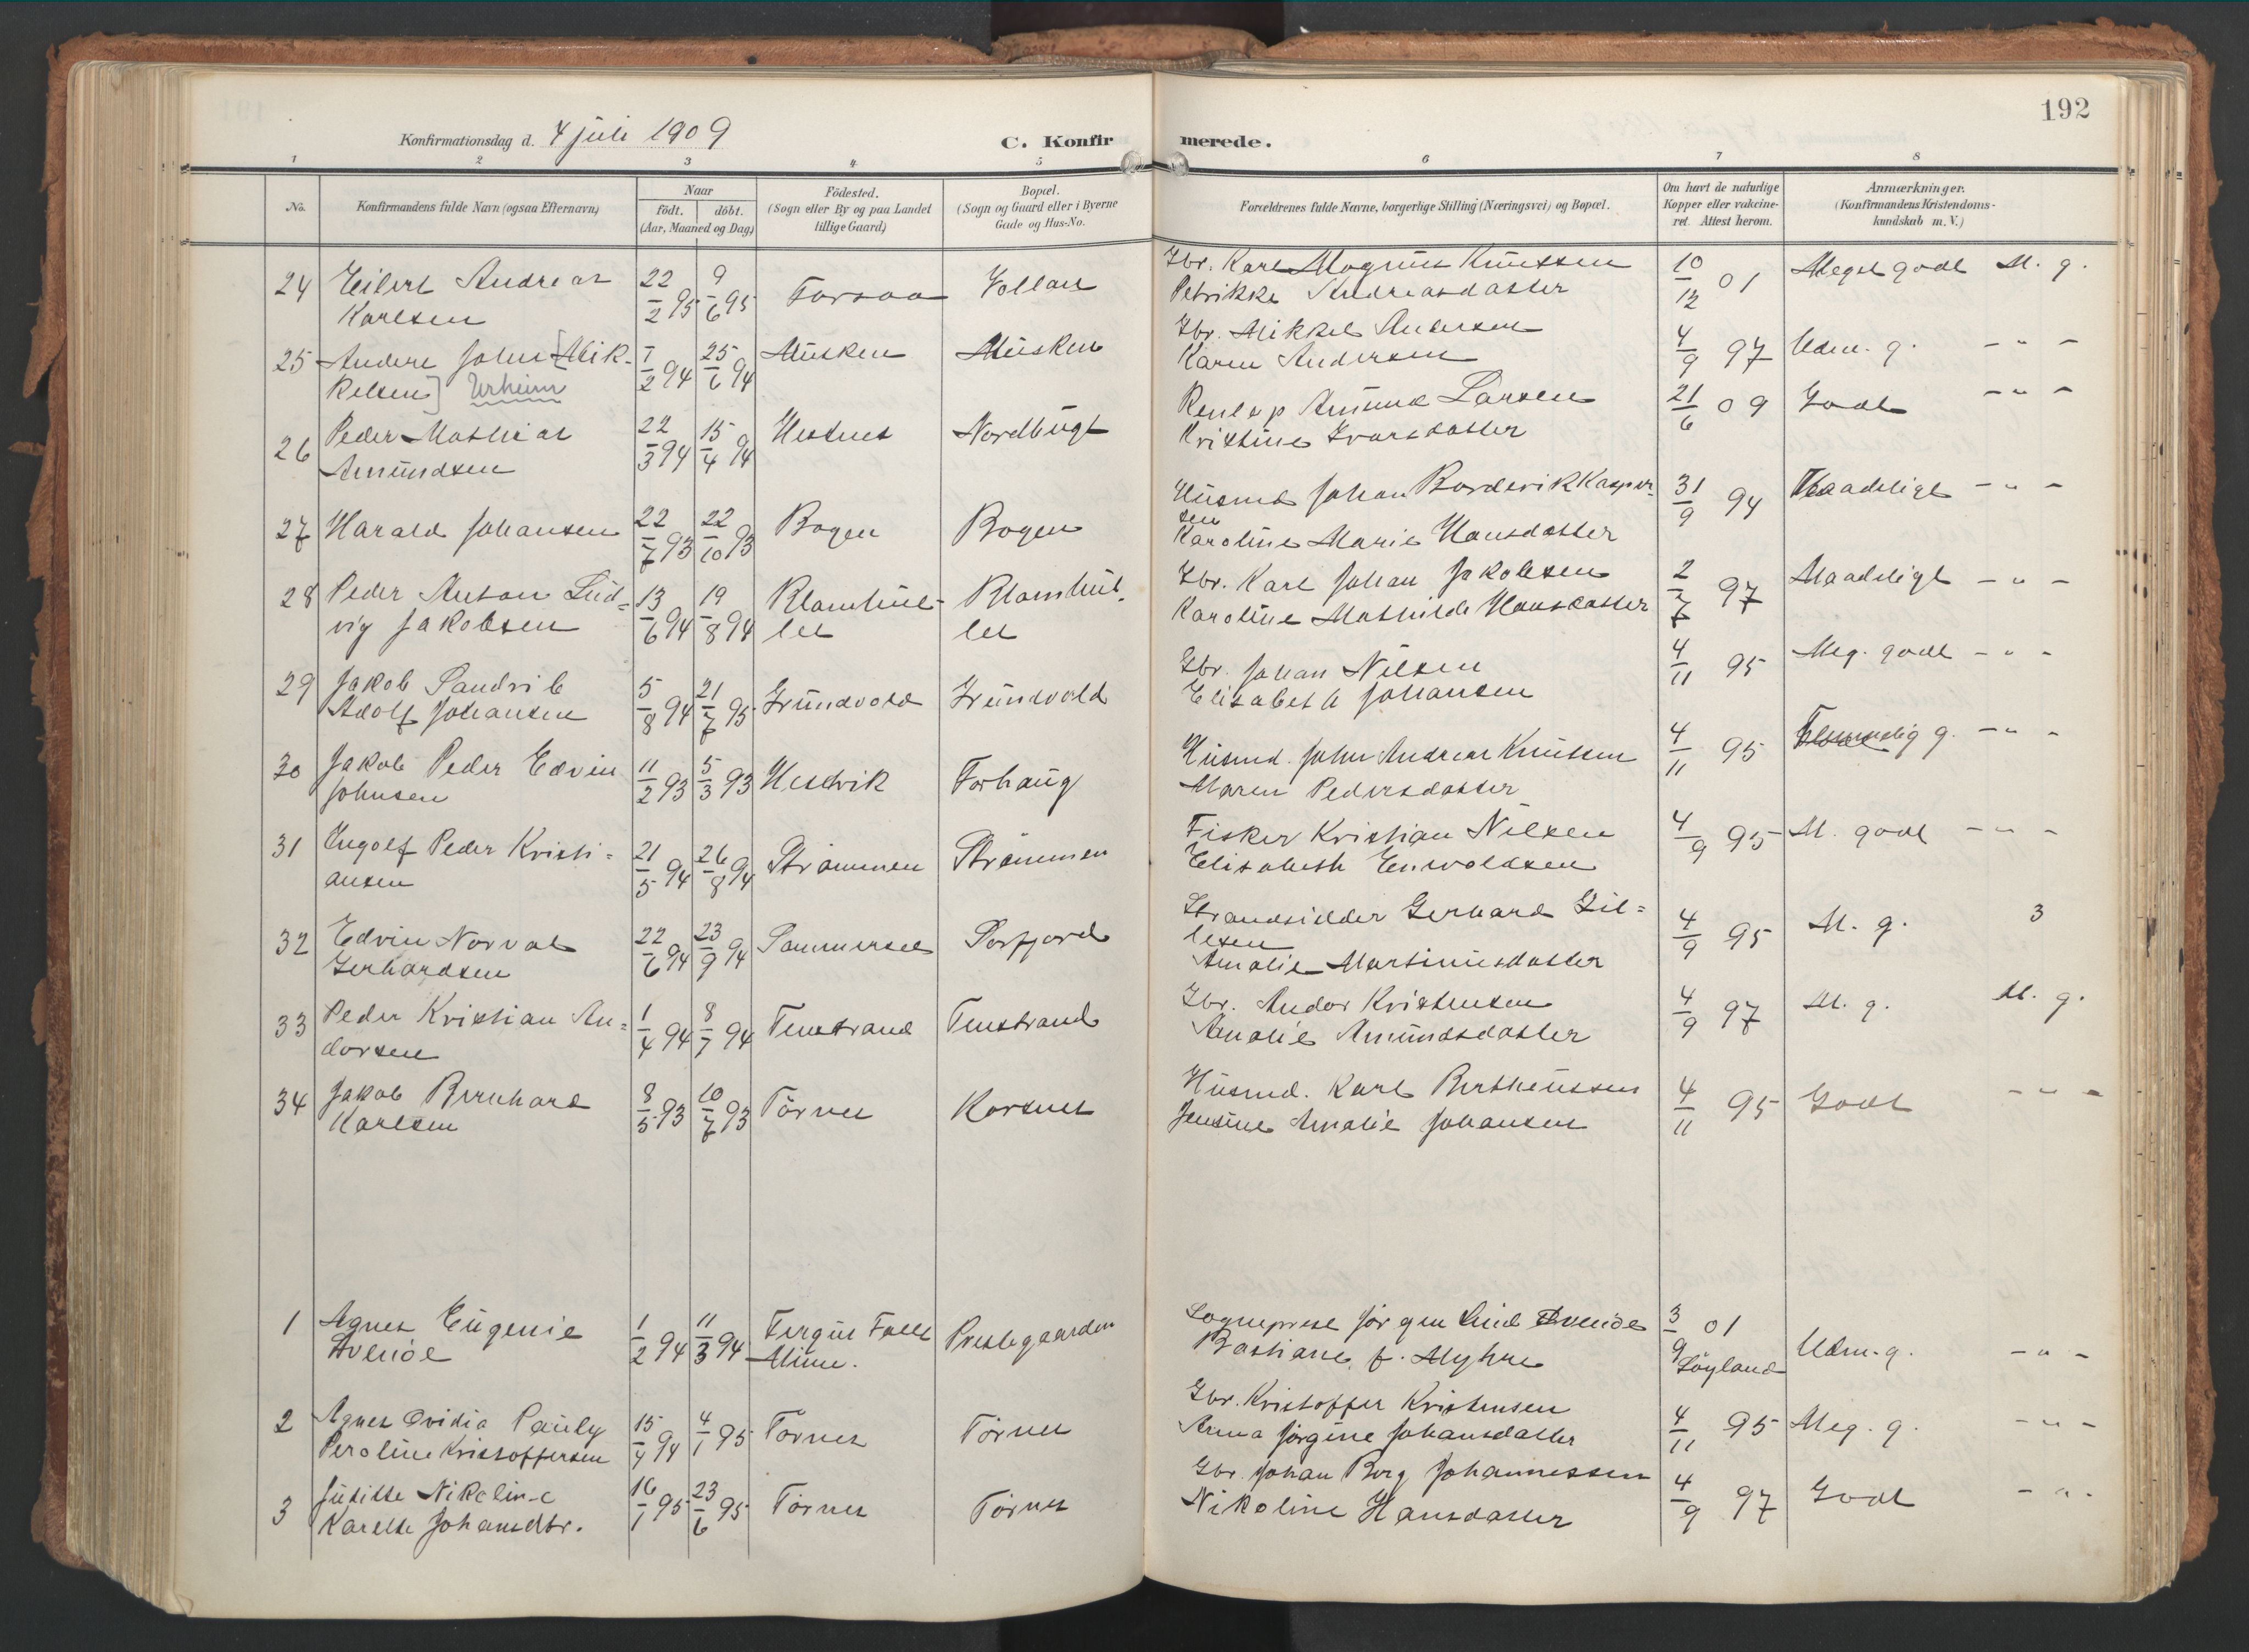 192
Konfirmationsdag d. 4 juli 1909
C. Konfirmerede.
1 2 3 4 5 6 7 8
No.
Konfirmandens fulde Navn (ogsaa Efternavn)
Naar
födt. döbt.
(Aar, Maaned og Dag)
Födested.
(Sogn eller By og paa Landet
tillige Gaard)
Bopæl.
(Sogn og Gaard eller i Byerne
Gade og Hus-No.
Forældrenes fulde Navne, borgerlige Stilling (Næringsvei) og Bopæl.
Om havt de naturlige
Kopper eller vakcine-
ret. Attest herom.
Anmærkninger.
(Konfirmandens Kristendoms-
kundskab m. V.)
24 Eilert Andreas Karlsen 22/2 95 9/6 95 Forsaa
Gbr. Karl Magnus Knutsen
Petrikke Andreasdatter
10/12 01 Meget godt M. g.
25 Anders Johan [Mik-
kelsen] Urheim
7/2 94 25/6 94 Musken Musken
Gbr. Mikkel Andersen
Karen Andersen
4/9 97 Udm. g. - " -
26 Peder Mathias
Amundsen
22/3 94 15/4 94 Hestnes Nordbugt
Amund Larsen
Kristine Ivarsdatter
21/6 09 Godt - " -
27 Harald Johansen 22/7 93 22/10 93 Bogen Bogen
Husmd Johan Kasper-
sen
Karoline Marie Hansdatter
31/9 94 Maadeligt - " -
28 Peder Anton Lud=
vig Jakobsen
13/6 94 19/8 94
Gbr. Karl Johan Jakobsen
Karoline Mathilde Hansdatter
2/7 97 Maadeligt - " -
29 Jakob
Adolf Johansen
5/8 94 21/7 95 Grundvold Grundvold
Gbr. Johan Nilsen
Elisabeth Johansen
4/11 95 Meg. godt - " -
30 Jakob Peder Edvin
Johnsen
11/2 93 5/3 93 Forhaug
Husmd. John Andreas Knutsen
Maren Pedersdatter
4/11 95 g. - " -
31 Ingolf Peder Kristi=
ansen
21/5 94 26/8 94 Strømmen Strømmen
Fisker Kristian Nilsen
Elisabeth Enwoldsen
4/9 95 M. godt - " -
32 Edvin Norval
Gerhardsen
22/6 94 23/9 94 Sommersel Sørfjord
Strandsidder Gerhard
Amalie Martinusdatter
4/9 95 M. g. 3
33 Peder Kristian An=
dorsen
1/4 94 8/7 94 Tenstrand Tenstrand
Gbr. Andor Kristensen
Amalie Amundsdatter
4/9 97 M. g. M. g.
34 Jakob Bernhard
Karlsen
8/5 93 10/7 93 Törnes Korsnes
Husmd. Karl Bertheussen
Jensine Amalie Johansen
4/11 95 Godt - " -
1 Agnes Eugenie
Svenöe
1/2 94 11/3 94 Fergus Falls
Minn.
Prestegaarden
Sogneprest Jörgen Lind Svenöe
Bastiane f. Myhre
3/9 01
Löyland
Udm. g. - " -
2 Agnes Ovidia Pauly
Peroline Kristoffersen
15/4 94 4/1 95 Törnes Törnes
Gbr. Kristoffer Kristensen
Anna Jörgine Johansdatter
4/11 95 Meg. g. - " -
3 Nikoline
Karelle Johansdtr.
16/1 95 23/6 95 Törnes Törnes
Gbr. Johan Berg Johannessen
Nikoline Hansdatter
4/9 97 Godt - " -